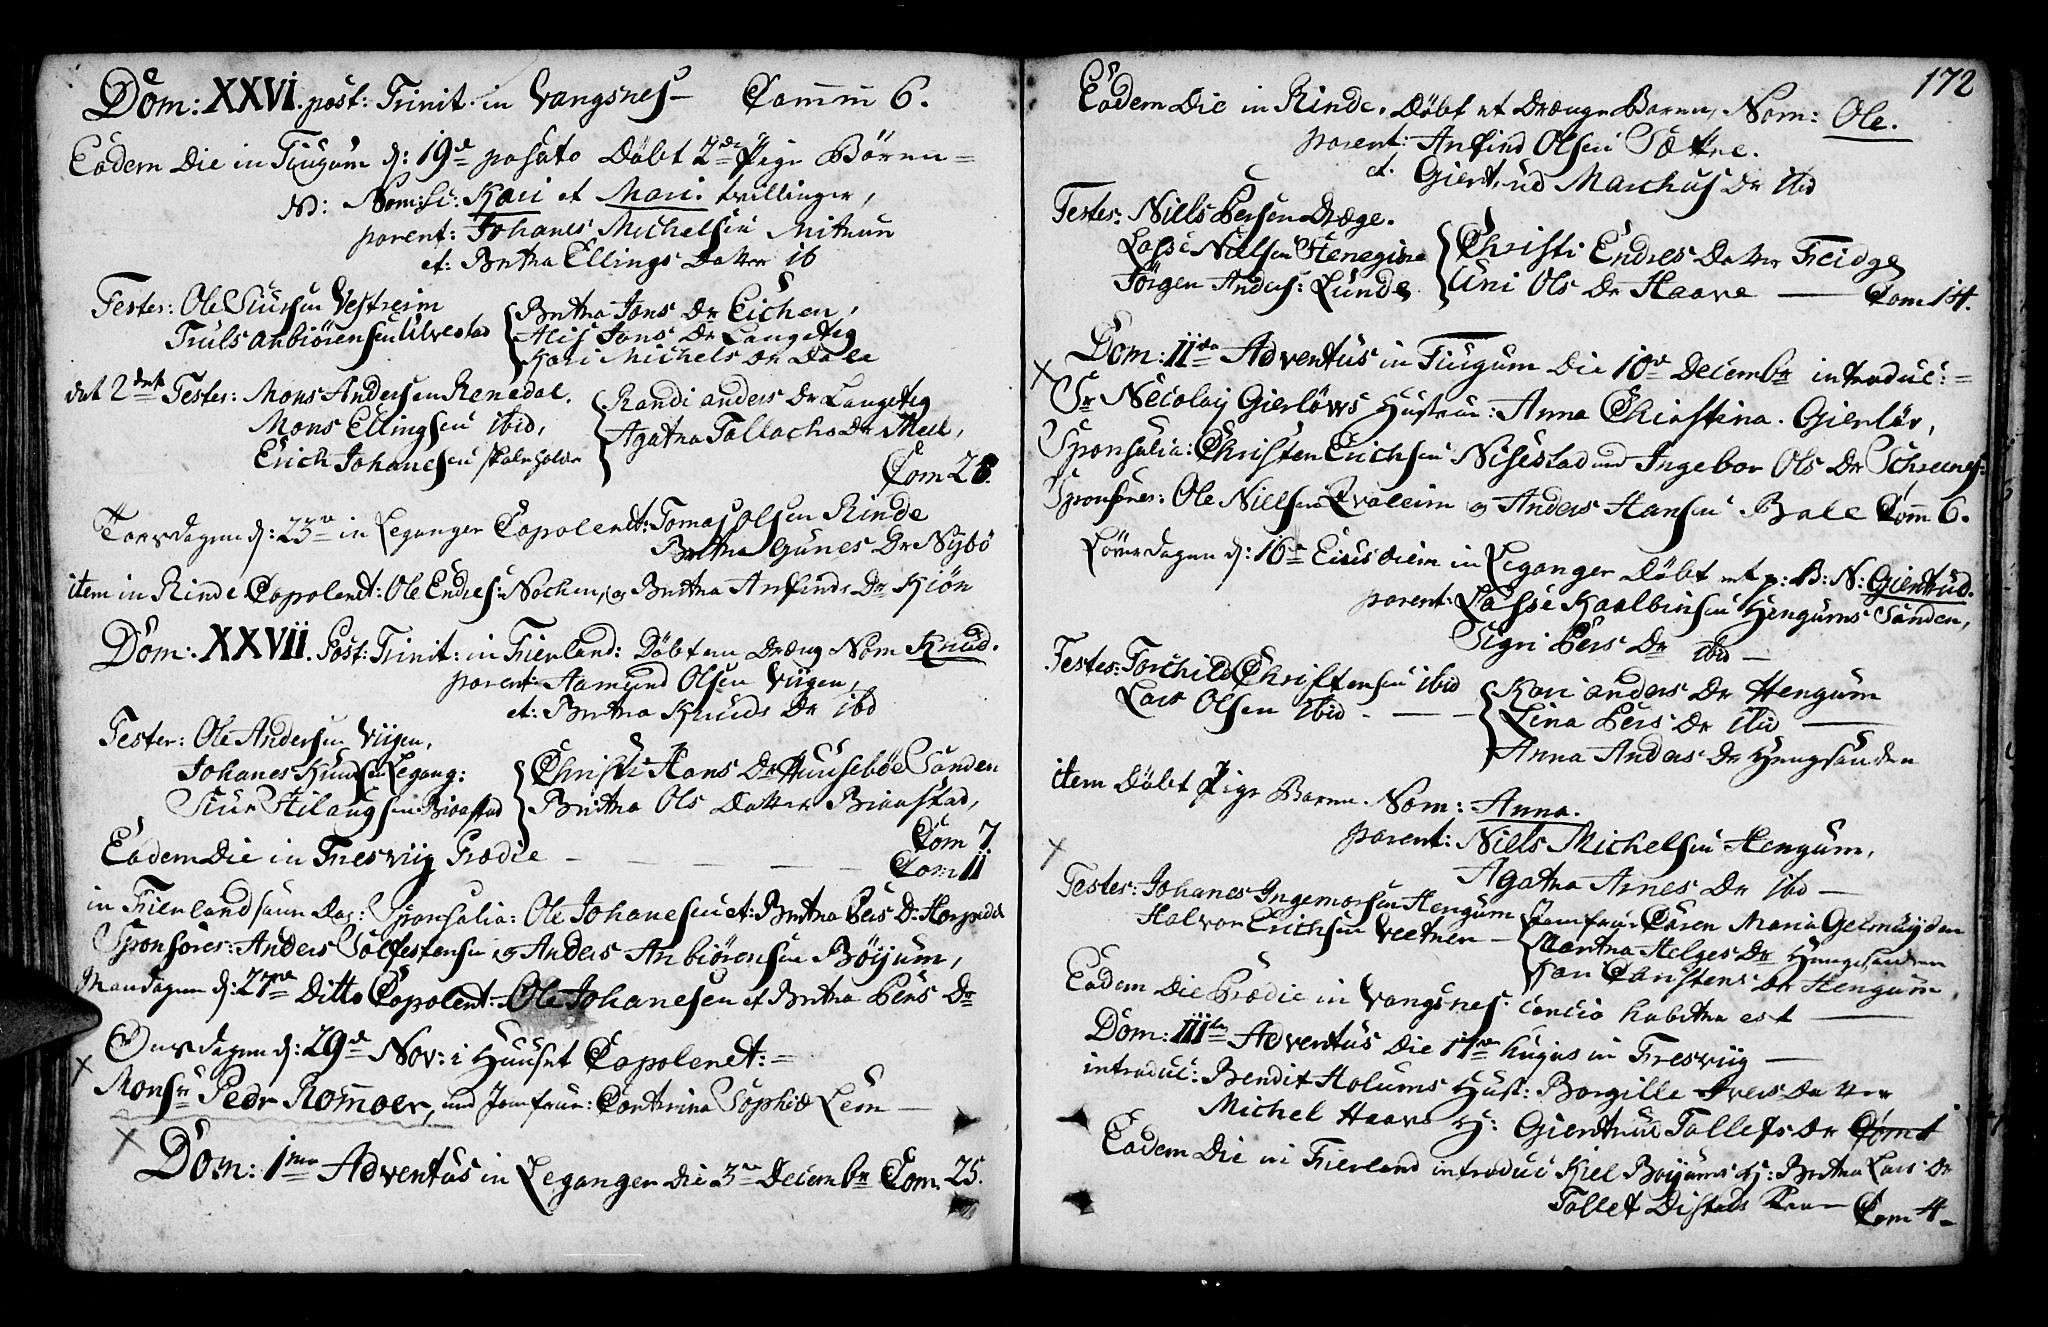 Dom: XXVI. post: Trinit. in Vangsnes — Comm 6.
Eadem Die in Tiugum d: 19de pasato Døbt 2de Pige Børen =
Nom: sc: Kari et Mari. tvillinger,
parent: Johanes Michelsen
et: Britha Ellings Datter ib
Testes: Ole Siursen Vestreim
Truls Anbiørensen Ulvestad
Britha Jons Dr Eichen,
Alis Jons Dr Langeteg
Kari Michels Dr Dale
det 2det Testes: Mons Andersen Renedal.
Mons Ellingsen ibid,
Erich Johanesen skoleholder
Randi anders Dr Langeteg
Agatha Tollachs Dr Mell,
Com 28.
Torsdagen d: 23de in Leganger Copoleret: Tomas Olsen Rinde
Britha Gunes Dr Nybø
item in Rinde Copoleret: Ole Endres: Nochen, og Britha Anfinds Dr Kiøn
Dom: XXVII. Post: Trinit: in Fierland: Døbt en Dræng Nom Knud.
parent: Aamund Olsen Viigen,
et: Britha Knuds Dr ibd
Testes: Ole Andersen Viigen,
Johanes Knudsen Legang:
Siur Hilaugsen Biørstad
Christi Hans Dr Huusebøe Sanden
Britha Ols Datter Biønstad,
Com 7
Eadem Die in Fresviig Prædic — — — — Com 11
in Fierland samme Dag: Sponsalia: Ole Johanesen et: Britha Pers Dr Horpedal
Sponsores: Anders Solfestensen og Anders Anbiørensen Bøyum,
Mandagen d: 27de Ditto Copolent: Ole Johanesen et Britha Pers Dr
Onsdagen d: 29de Nov: i Huuset Copoleret: =
Monsr Pedr Romoer, und Jomfrue: Cathrina Sophia Lem —
Dom: 1ma Adventus in Leganger Die 3de Decembr Com. 25.
172
Eadem Die in Rinde. Døbt et Drænge Barn, Nom: Ole.
parent: Anfind Olsen Sætre.
et. Giertrud Marchus Dr ibid
Testes: Niels Persen Dræge.
Lasse Nielsen Stenegine
Jørgen Anders: Lunde
Christi Endres Datter Feidge
Uni Ols Dr Haave — Com 14.
Dom: IIda Adventus in Tiugum Die 10de Decembr introduc: =
Sr Necolay Gierløws Hustrue: Anna Christina. Gierløv,
Sponsalia: Christen Erichsen Nisestad und Ingebor Ols Dr Schrenes:
Sponsores: Ole Nielsen Qvaleim og Anders Hansen Bale Com 6.
Løverdagen d: 16de Eiusdem in Leganger Døbt et p: B: N: Giertrud.
parent: Lasse Kaalbinsen Hengums Sanden,
Sigri Pers Dr ibid —
Testes: Torchild Christensen ibid
Lars Olsen ibid — — —
Kari anders Dr Hengum
Lina Pers Dr ibid —
Anna Anders Dr Hengsanden
item Døbt Pige Barn. Nom: Anna.
parent: Niels Michelsen Hengum,
Agatha Arnes Dr ibd —
Testes: Johanes Ingemorsen Hengum
Halvor Erichsen Veetnen —
Jomfrue Caren Maria Gelmuyden
Martha Helges Dr Hengesanden
Kari Christens Dr Hengum,
Eadem Die Prædic in Vangsnes: concio habitha est —
Dom: IIItia Adventus Die 17de hujus in Fresviig —
introduc: Bendix Holums Hust: Borgille Ivers Datter
Michel Haavs H: Giertrud Tollefs Dr Com 1
Eadem Die in Fierland introduc Kiel Bøijums H: Britha Lars Dr
Tollef Distads Kone — Com 4 —